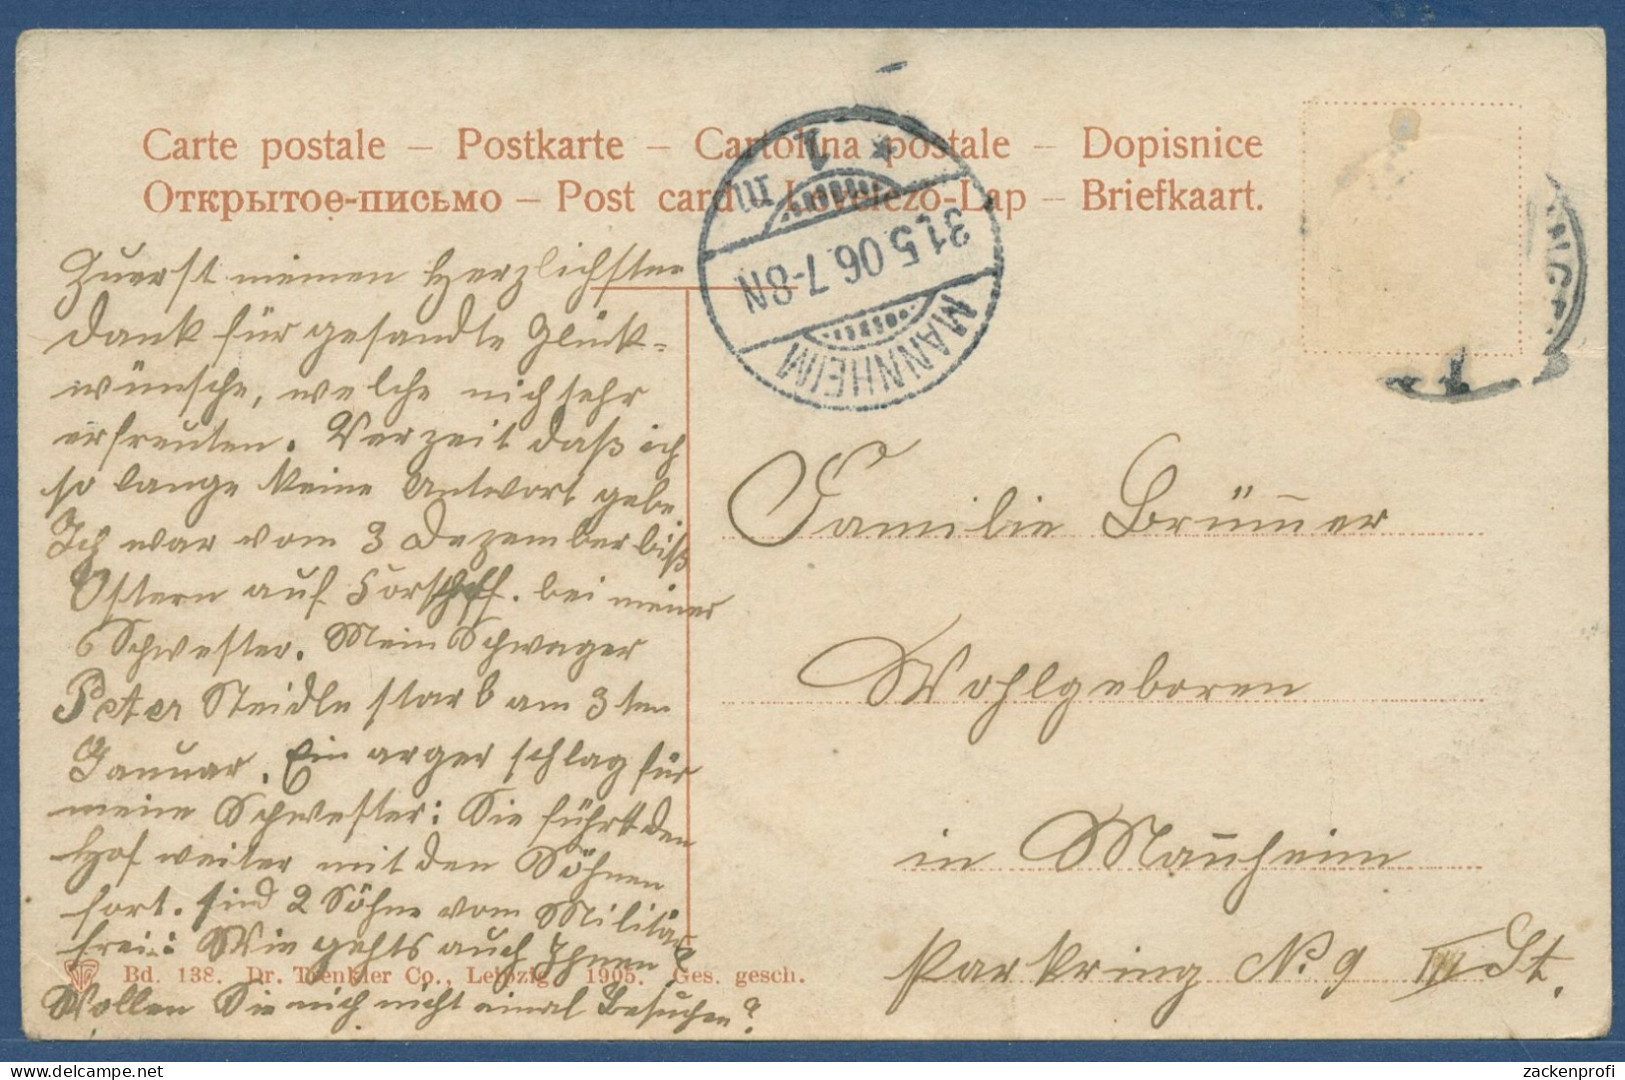 Carte postale – Postkarte – Cartolina postale – Dopisnice
Открытое-письмо – Post card – Levelező-Lap – Briefkaart.
MANNHEIM
31.5.06.7-8N
* 1
Zuerst meinen Herzlichsten
Dank für gesandte Glück-
wünsche, welche mich sehr
erfreuten. Verzeit daß ich
so lange keine Antwort gebe
Ich war vom 3 Dezember biß
Ostern auf Forsthff. bei meiner
Schwester. Mein Schwager
Peter Steidle starb am 3ten
Januar. Ein arger schlag für
meine Schwester: Sie führt den
Hof weiter mit den Söhnen
fort. sind 2 Söhne vom Militär
frei: Wie gehts auch Ihnen?
Wollen Sie mich nicht einmal Besuchen?
Familie Brümer
Wohlgeboren
in Manheim
Parkring No. 9 III St.
Bd. 138. Dr. Trenkler Co., Leipzig 1905. Ges. gesch.
zackenprofi
Delcampe.net